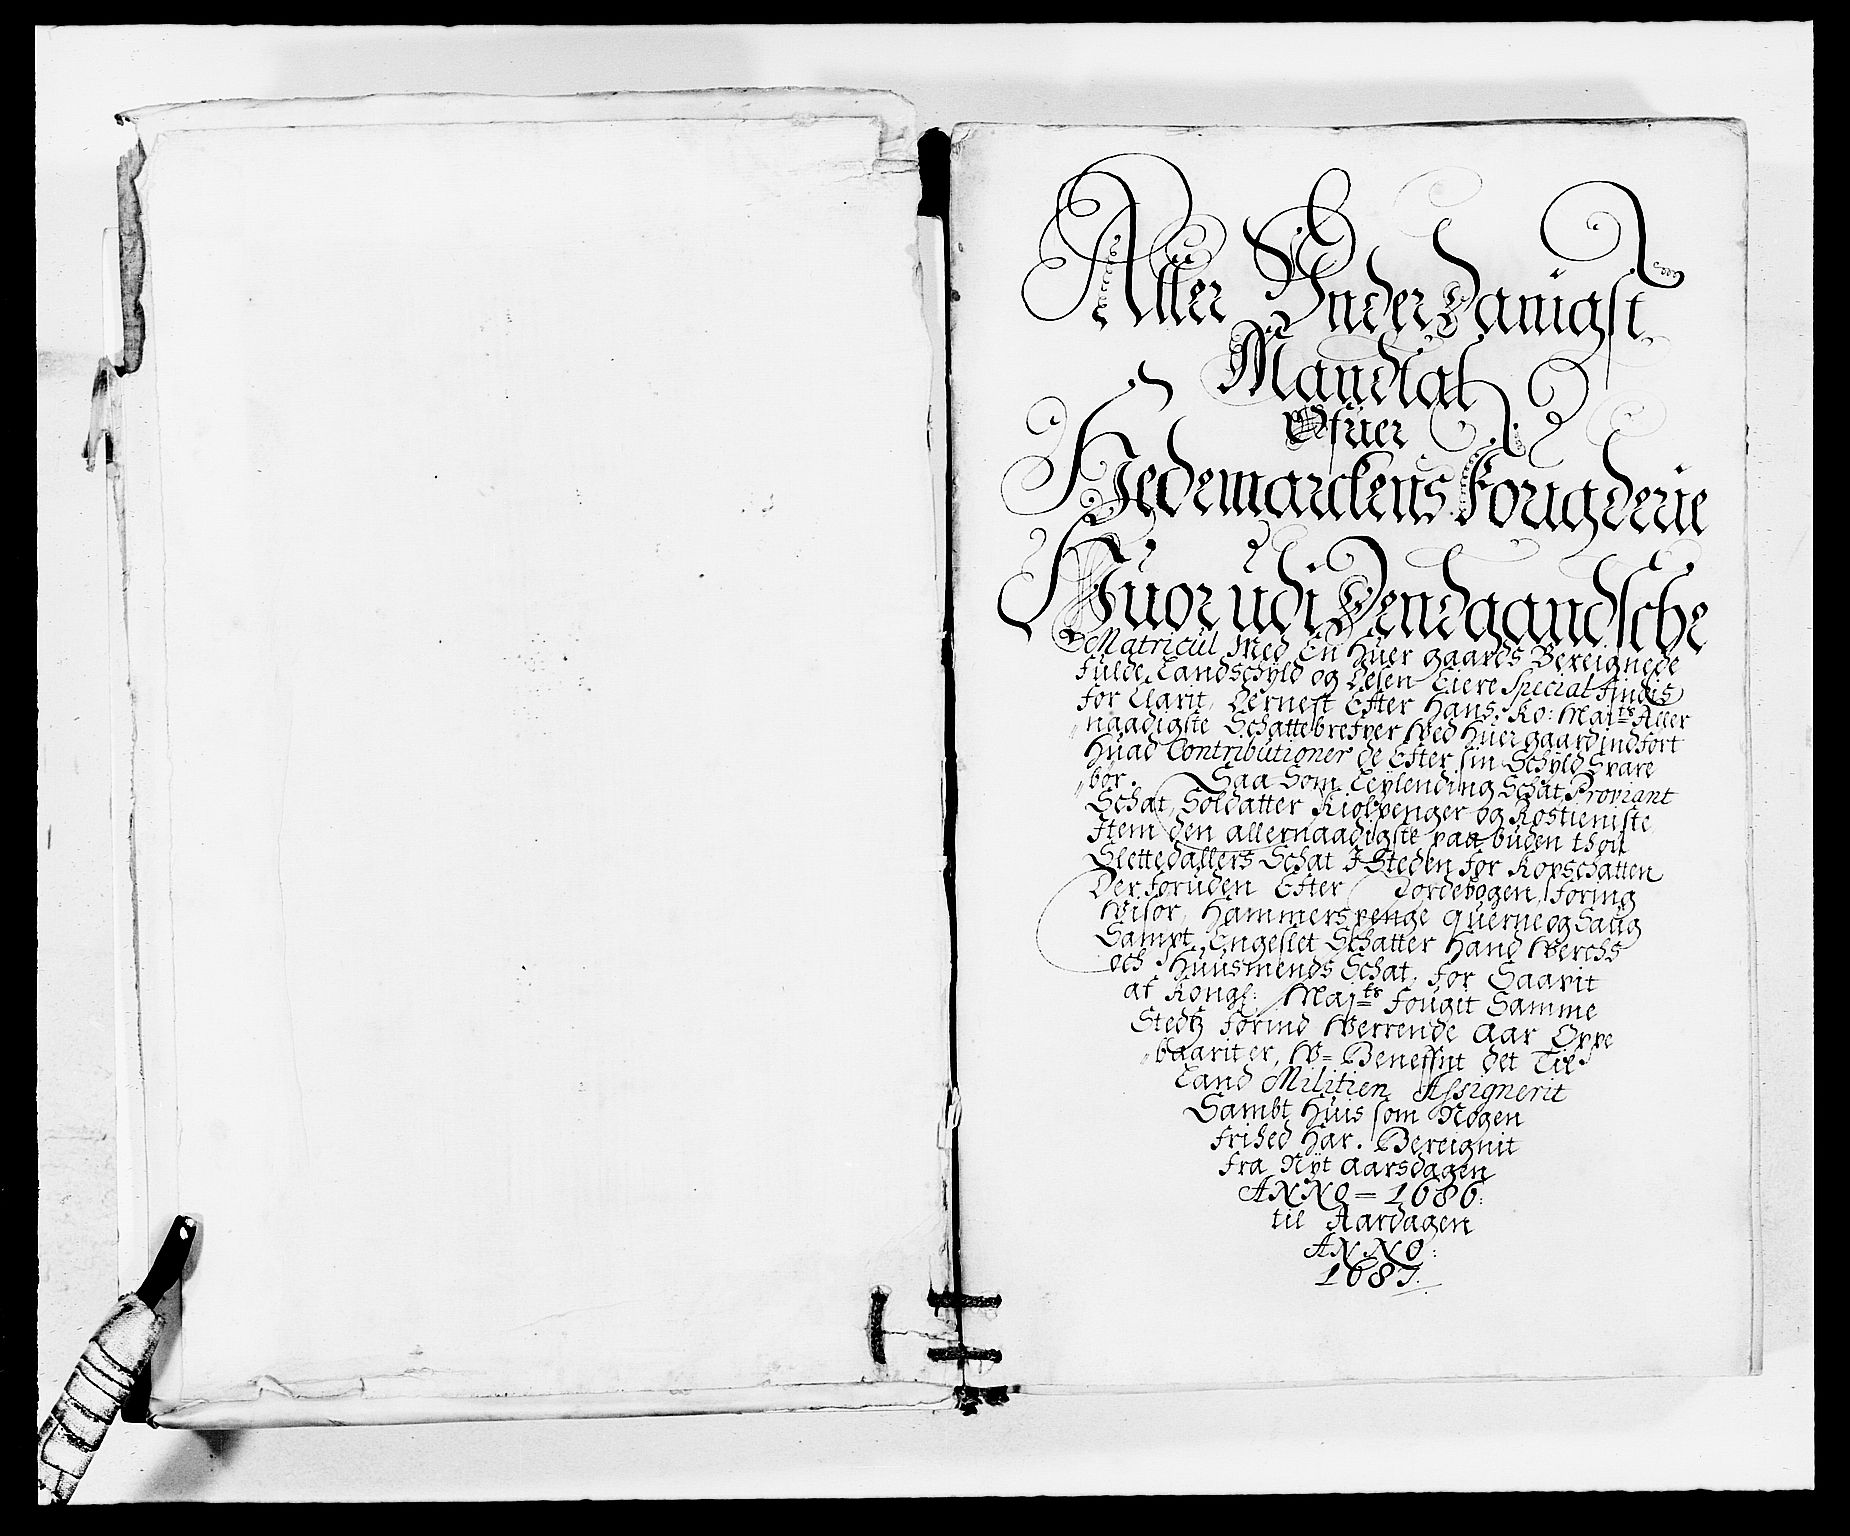 Aller Under Danigst
Mandtal
Ofuer
Hedemarckens Fougderie
Huor udi Dend gandsche
Matricul Med En Huer gaards Bereignede
fulde Landschyld og Desen Eiere Special findis
for Clarit, Dernest Efter Hans Ko: Maÿts Aller
naadigste Schattebrefver Ved Huer gaard indfört
Huad Contributioner de Efter sin Schyld Svare
bör. Saa Som Leylending Schat Proviant
Schat, Soldatter Kiolpenger og Kostieniste
Item den allernaadigste paa buden thou
Slettedallers Schat I Steden for Kopschatten
Der foruden Efter Jordebogen, foring
Visör, Hammerspenge Querne og Saug
Sampt Engeslet Schatter Hand Werchs
och Huusmends Schat, for Saavit
af Kongl: Maÿts fougit Samme
Stedtz forind Werrende Aar Oppe
baarit er, W= Benefnt det Til
Land Militien Assignerit
Sambt Huis som Nogen
frihed Har. Bereignit
fra Nÿt aarsdagen
ANNO = 1686:
til Aardagen
ANNO:
1687.